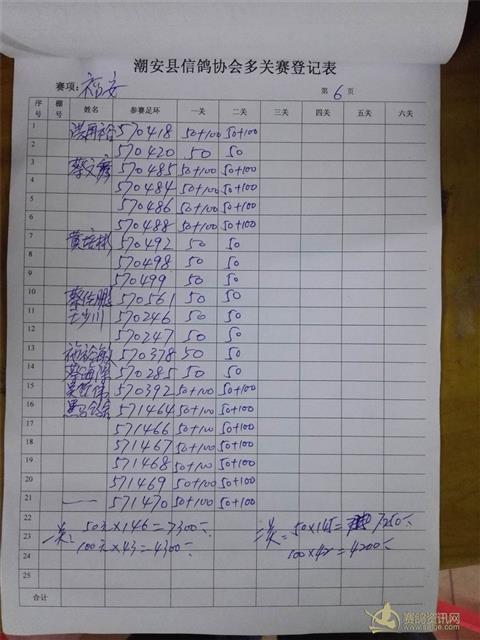 潮安县信鸽协会多关赛登记表
赛项: 福安 第 6 页
序号 棚号 姓名 参赛足环 一关 二关 三关 四关 五关 六关
1 570418 50+100 50+100
2 570420 50 50
3 蔡文 570485 50+100 50+100
4 570484 50+100 50+100
5 570486 50+100 50+100
6 570488 50+100 50+100
7 黄 570492 50 50
8 570498 50 50
9 570499 50 50
10 蔡 鹏 570561 50 50
11 少川 570246 50 50
12 570247 50 50
13 570378 50 50
14 蔡海 570285 50 50
15 吴 伟 570392 50+100 50+100
16 571464 50+100 50+100
17 571466 50+100 50+100
18 571467 50+100 50+100
19 571468 50+100 50+100
20 571469 50+100 50+100
21 571470 50+100 50+100
22 50元×146=7300 50×145= 7250
23 100元×43=4300 100×42=4200
24
25
合计
赛鸽资讯网
www.saige.com